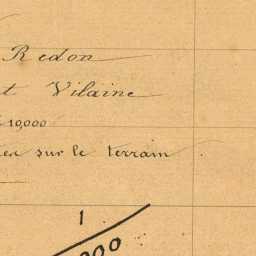 Redon
et Vilaine
10,000
sur le terrain
1
000